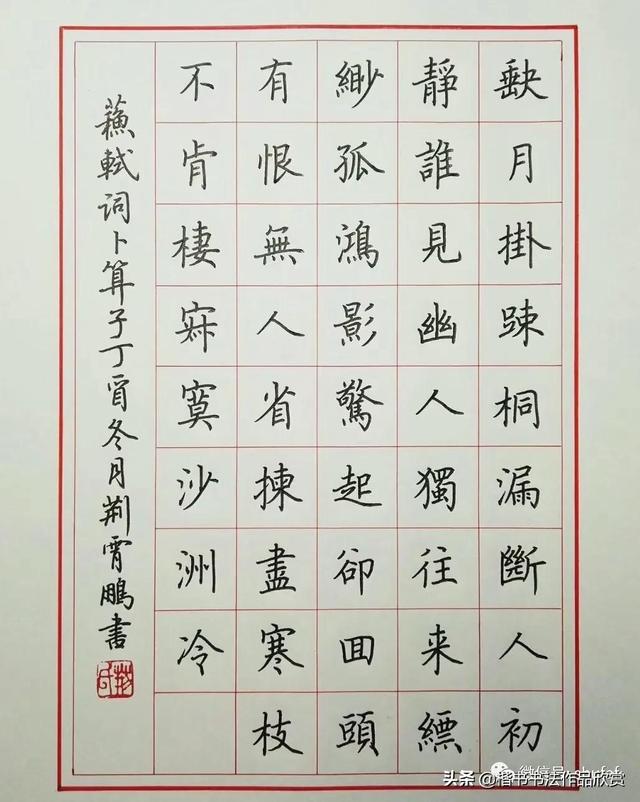 缺月掛踈桐漏斷人初
靜誰見幽人獨往来縹
緲孤鴻影驚起卻囬頭
有恨無人省揀盡寒枝
不肯棲寂寞沙洲冷
蘓軾词卜算子丁酉冬月荆霄鵬書
头条 @楷书书法作品欣赏